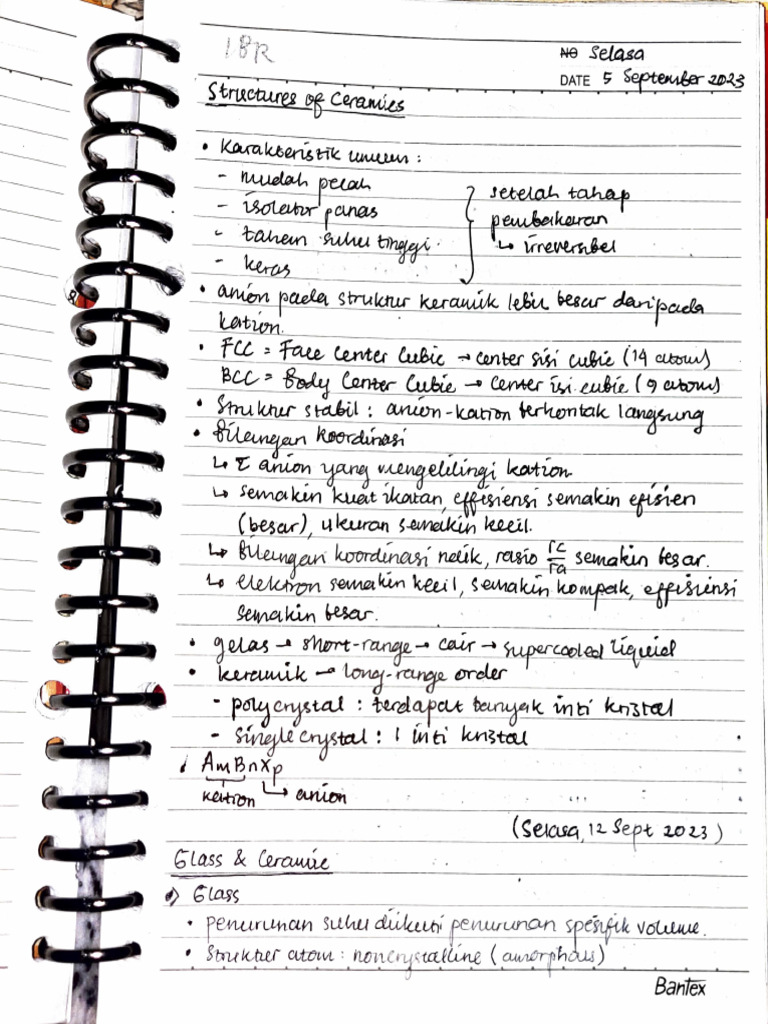 IBR
NO Selasa
DATE 5 September 2023
Structures of Ceramics
• Karakteristik umum :
- mudah pecah
- isolator panas
- tahan suhu tinggi
- keras
setelah tahap
pembakaran
↳ irreversibel
• anion pada struktur keramik lebih besar daripada
kation.
• FCC = Face Center Cubic → center sisi cubic (14 atom)
BCC = Body Center Cubic → center isi cubic (9 atom)
• Struktur stabil : anion-kation berkontak langsung
• Bilangan koordinasi
↳ Σ anion yang mengelilingi kation
↳ semakin kuat ikatan, effisiensi semakin efisien
(besar), ukuran semakin kecil.
↳ Bilangan koordinasi naik, rasio rc/ra semakin besar.
↳ elektron semakin kecil, semakin kompak, effisiensi
semakin besar.
• gelas → short-range → cair → supercooled liquid
• keramik → long-range order
- polycrystal : terdapat banyak inti kristal
- single crystal : 1 inti kristal
• AmBnXp
kation ↳ anion
(Selasa, 12 Sept 2023)
Glass & Ceramic
•) Glass
• penurunan suhu diikuti penurunan spesifik volume.
• struktur atom : noncrystalline (amorphous)
Bantex